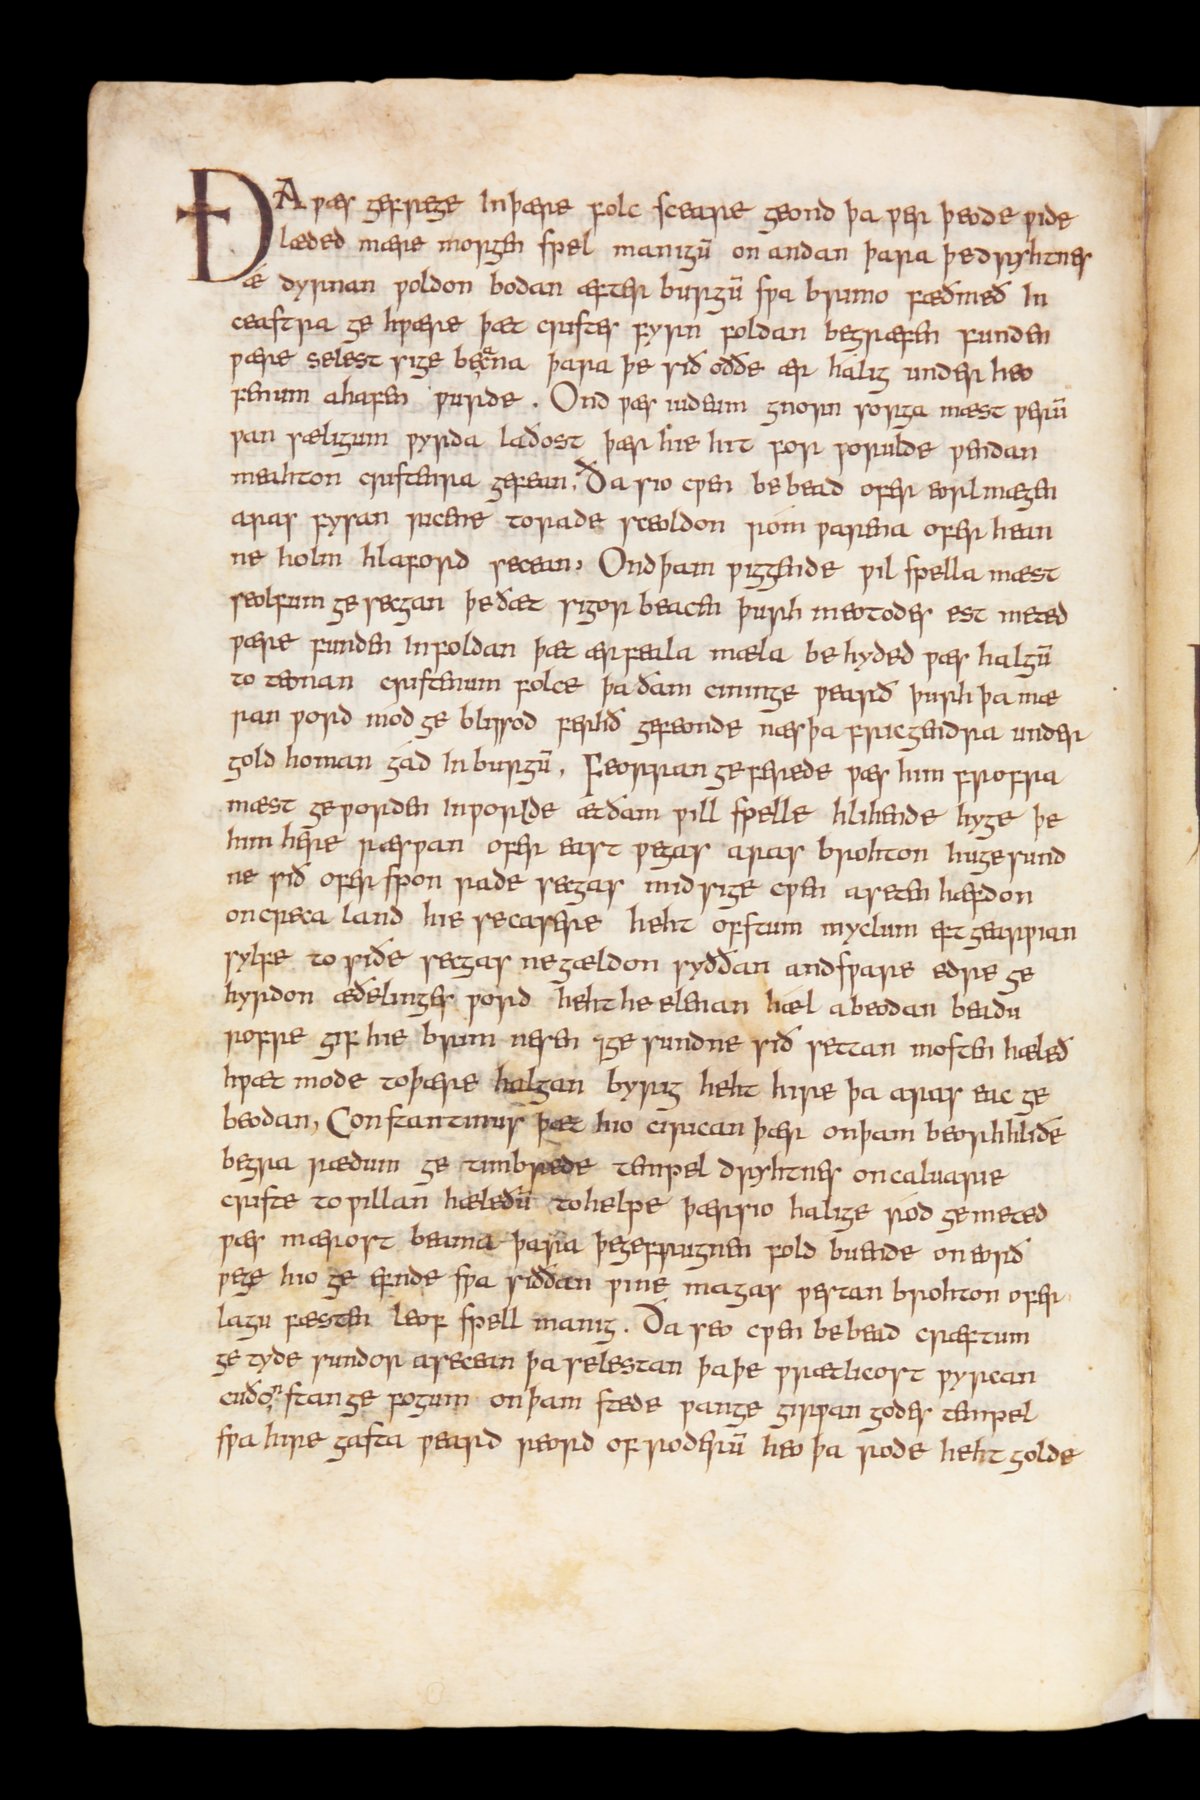 ÐA ƿæs gefrege in þære folc sceare geond þa ƿer þeode ƿide
læded mære morgen spel manigū on andan þara þe dryhtnes
æ dyrnan ƿoldon boden æfter burgū sƿa brimo fæðmeð in
ceastra ge hƿære þæt cristes fyrn foldan begræfen funden
ƿære selest sige beacna þara þe sið oððe ær halig under heo
fenum ahafen ƿurde . Ond ƿæs iudeum gnorn sorga mæst ƿerū
ƿan sæligum ƿyrda laðost þær hie hit for worulde ƿendan
meahton cristenra gefean . Ða sio cƿen be bead ofer eorl mægen
aras fysan ricene to rade sceoldon rom ƿarena ofer hean
ne holm hlaford secean , Ond þam ƿiggende ƿil spella mæst
seolfum ge secgan þe ðæt sigor beacen þurh meotodes est meted
ƿære funden in foldan þæt ær feala mæla be hyded ƿæs halgū
to teonan cristenum folce þa ðam cininge ƿearð þurh þa mæ
ran ƿord mod ge blissod ferhð gefeonde næs þa fricgendra under
gold homan gád in burgū , Feorran geferede ƿæs him frofra
mæst ge ƿorden in ƿorlde æt ðam ƿill spelle hlihende hyge þe
him here ræsƿan ofer east ƿegas aras brohton hu gesund
ne sið ofer sƿon rade secgas mid sige cƿen aseten hæfdon
on creca land hie se casere heht ofstum myclum eft gearƿian
sylfe to siðe secgas ne gældon syððan andsƿare edre ge
hyrdon æðelinges ƿord heht he elenan hæl abeodan beadu
rofre gif hie brim nesen ⁊ge sundne sið settan mosten hæleð
hƿæt mode to þære halgan byrig heht hire þa aras eac ge
beodan , Constantinus þæt hio cirican þær on þam beorhhliðe
begra rædum ge timbrede tempel dryhtnes on caluarie
criste to ƿillan hæleðū to helpe þær sio halige rod gemeted
ƿæs mærost beama þara þe gefrugnen fold buende on eorð
ƿege hio ge efnde sƿa siððan ƿine magas ƿestan brohton ofer
lagu fæsten leof spell manig . Ða seo cƿen be bead cræftum
ge tyde sundor asecean þa selestan þa þe ƿrætlicost ƿyrcan
cuðon stan ge fogum on þam stede ƿange girƿan godes tempel
sƿa hire gasta ƿeard reord of roderū heo þa rode heht golde